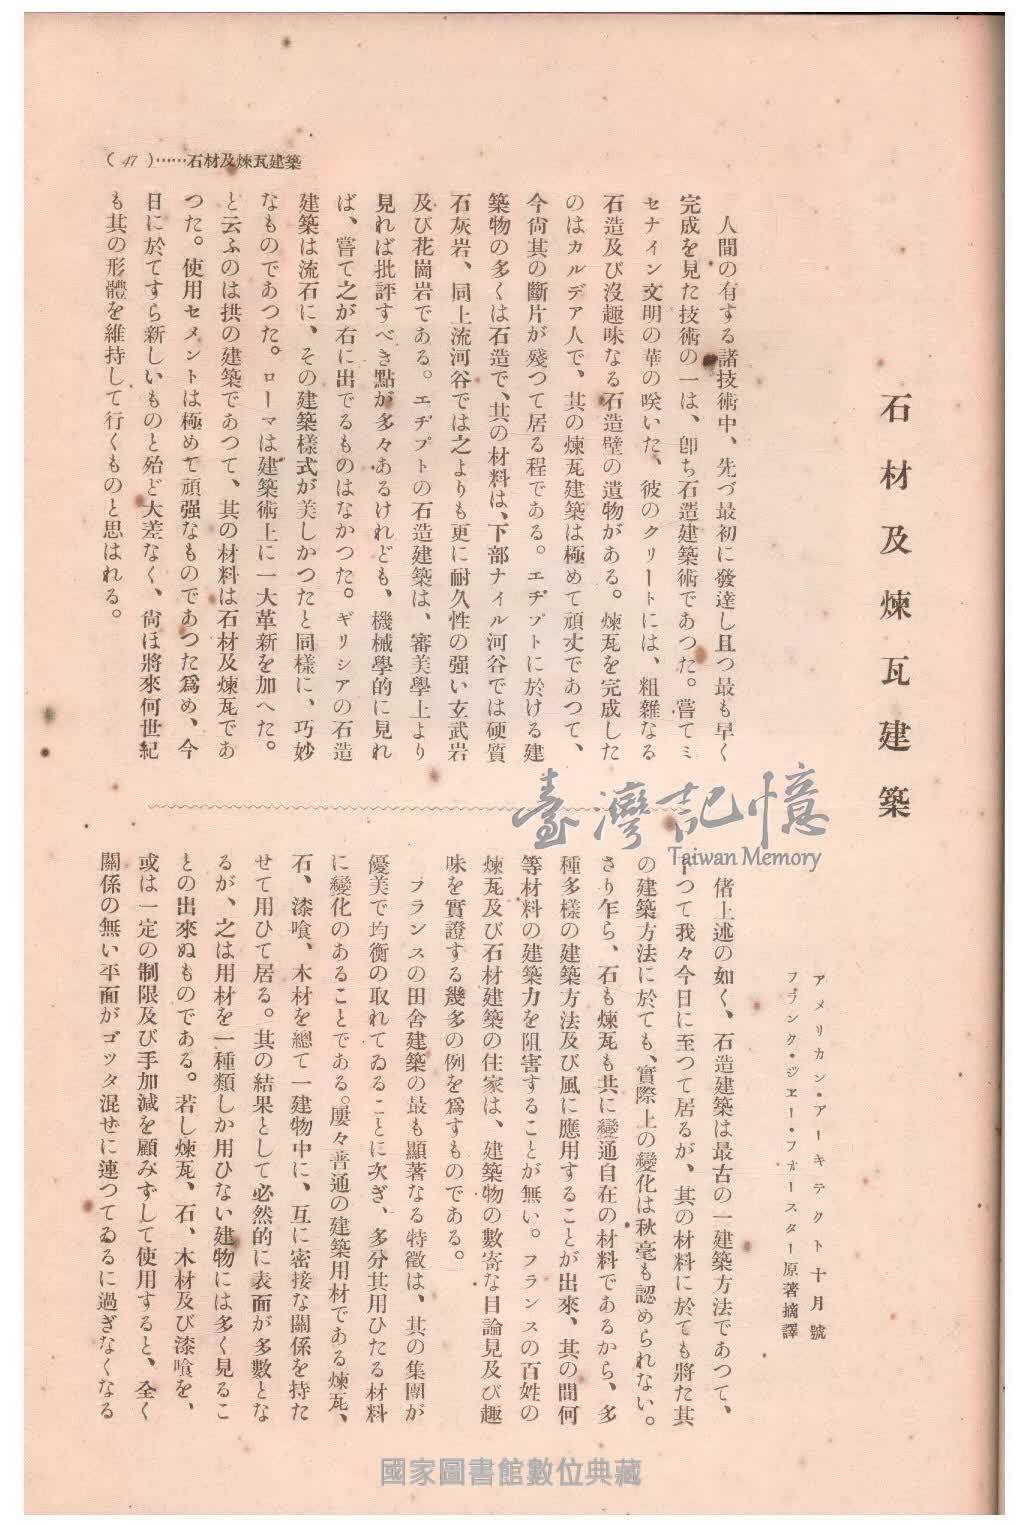 石材及煉瓦建築
アメリカン・アーキテクト十月號
フランク・ジエー・フオースター原著摘譯
(47)……石材及煉瓦建築
人間の有する諸技術中、先づ最初に發達し且つ最も早く
完成を見た技術の一は、卽ち石造建築術であつた。嘗てミ
セナイン文明の華の咲いた、彼のクリートには、粗雜なる
石造及び沒趣味なる石造壁の遺物がある。煉瓦を完成した
のはカルデア人で、其の煉瓦建築は極めて頑丈であつて、
今尙其の斷片が殘つて居る程である。エヂプトに於ける建
築物の多くは石造で、其の材料は、下部ナイル河谷では硬質
石灰岩、同上流河谷では之よりも更に耐久性の强い玄武岩
及び花崗岩である。エヂプトの石造建築は、審美學上より
見れば批評すべき點が多々あるけれども、機械學的に見れ
ば、嘗て之が右に出でるものはなかつた。ギリシアの石造
建築は流石に、その建築樣式が美しかつたと同樣に、巧妙
なものであつた。ローマは建築術上に一大革新を加へた。
と云ふのは拱の建築であつて、其の材料は石材及煉瓦であ
つた。使用セメントは極めて頑强なものであつた爲め、今
日に於てすら新しいものと殆ど大差なく、尙ほ將來何世紀
も其の形體を維持して行くものと思はれる。
偖上述の如く、石造建築は最古の一建築方法であつて、
つて我々今日に至つて居るが、其の材料に於ても將た其
の建築方法に於ても、實際上の變化は秋毫も認められない。
さり乍ら、石も煉瓦も共に變通自在の材料であるから、多
種多樣の建築方法及び風に應用することが出來、其の間何
等材料の建築力を阻害することが無い。フランスの百姓の
煉瓦及び石材建築の住家は、建築物の數寄な目論見及び趣
味を實證する幾多の例を爲すものである。
フランスの田舍建築の最も顯著なる特徵は、其の集團が
優美で均衡の取れてゐることに次ぎ、多分其用ひたる材料
に變化のあることである。屢々普通の建築用材である煉瓦、
石、漆喰、木材を總て一建物中に、互に密接な關係を持た
せて用ひて居る。其の結果として必然的に表面が多數とな
るが、之は用材を一種類しか用ひない建物には多く見るこ
との出來ぬものである。若し煉瓦、石、木材及び漆喰を、
或は一定の制限及び手加減を顧みずして使用すると、全く
關係の無い平面がゴツタ混ぜに連つてゐるに過ぎなくなる
臺灣記憶
Taiwan Memory
國家圖書館數位典藏